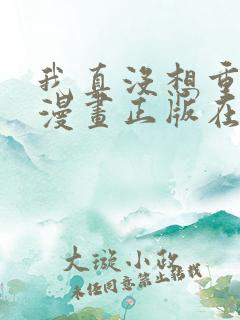 我真没想重
漫畫正版在
大璇小政
未经同意禁止转载